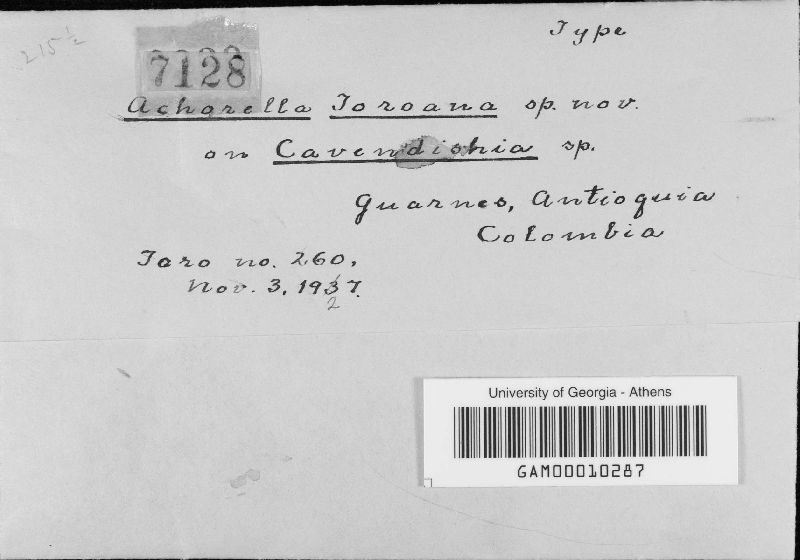 Type
215½
7128
Achorella Toroana sp. nov.
on Cavendishia sp.
Guarnes, Antioquia
Colombia
Toro no. 260,
Nov. 3, 1937.
2
University of Georgia - Athens
GAM00010287